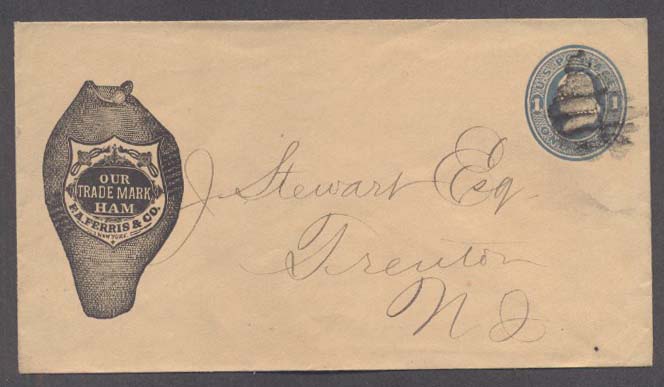 U.S. POSTAGE
1 1
ONE
OUR
TRADE MARK
HAM
F.A. FERRIS & CO.
NEW YORK
J Stewart Esq
Trenton
N J